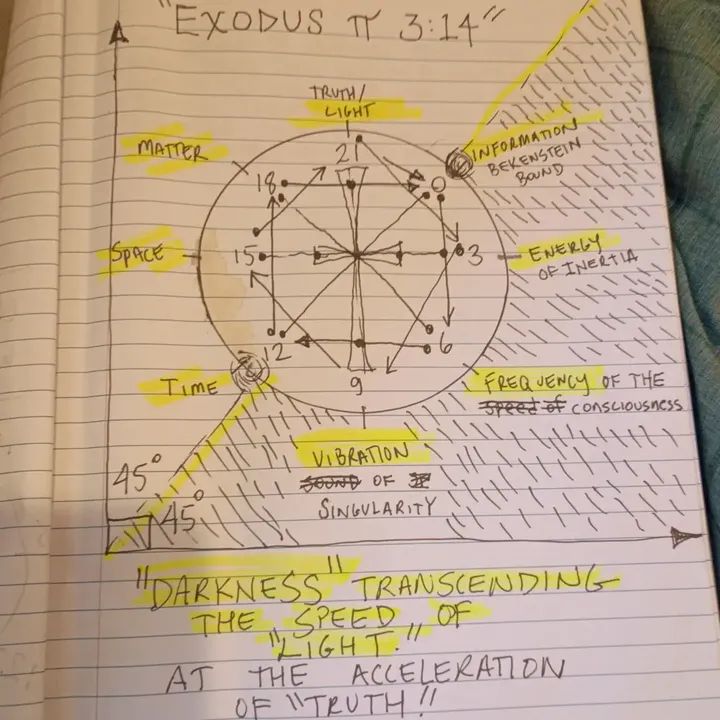 "EXODUS π 3:14"
TRUTH/
LIGHT
MATTER
INFORMATION
BEKENSTEIN
BOUND
21
18
0
SPACE
15
3
ENERGY
OF INERTIA
12
6
9
TIME
FREQUENCY OF THE
speed of CONSCIOUSNESS
VIBRATION
SOUND OF
SINGULARITY
45°
45°
"DARKNESS" TRANSCENDING
THE SPEED OF
"LIGHT."
AT THE ACCELERATION
OF "TRUTH!!